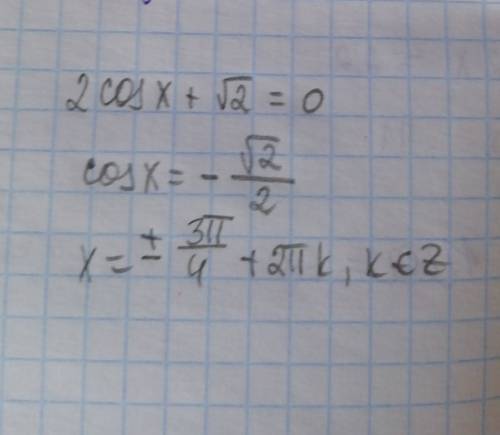 2 cos x + √2 = 0
cos x = - √2/2
x = ± 3π/4 + 2πk, k ∈ Z